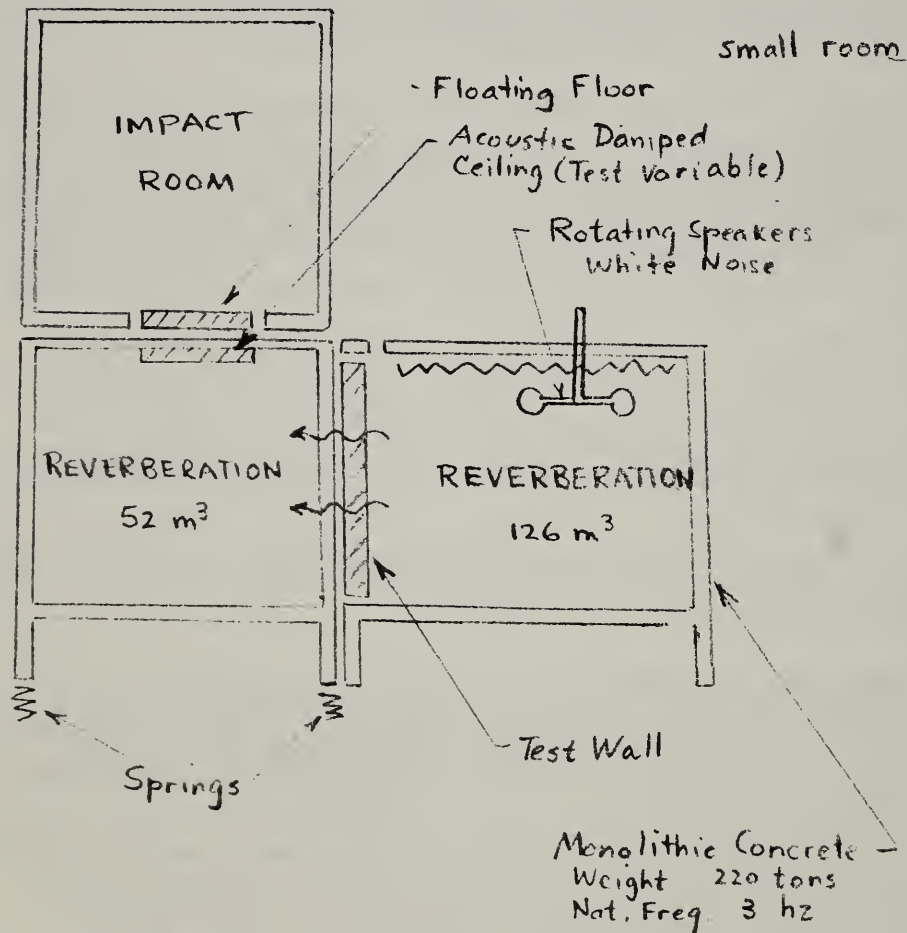 small room
IMPACT
ROOM
Floating Floor
Acoustic Damped
Ceiling (Test Variable)
Rotating Speakers
White Noise
REVERBERATION
52 m³
REVERBERATION
126 m³
Test Wall
Springs
Monolithic Concrete
Weight 220 tons
Nat. Freq. 3 hz